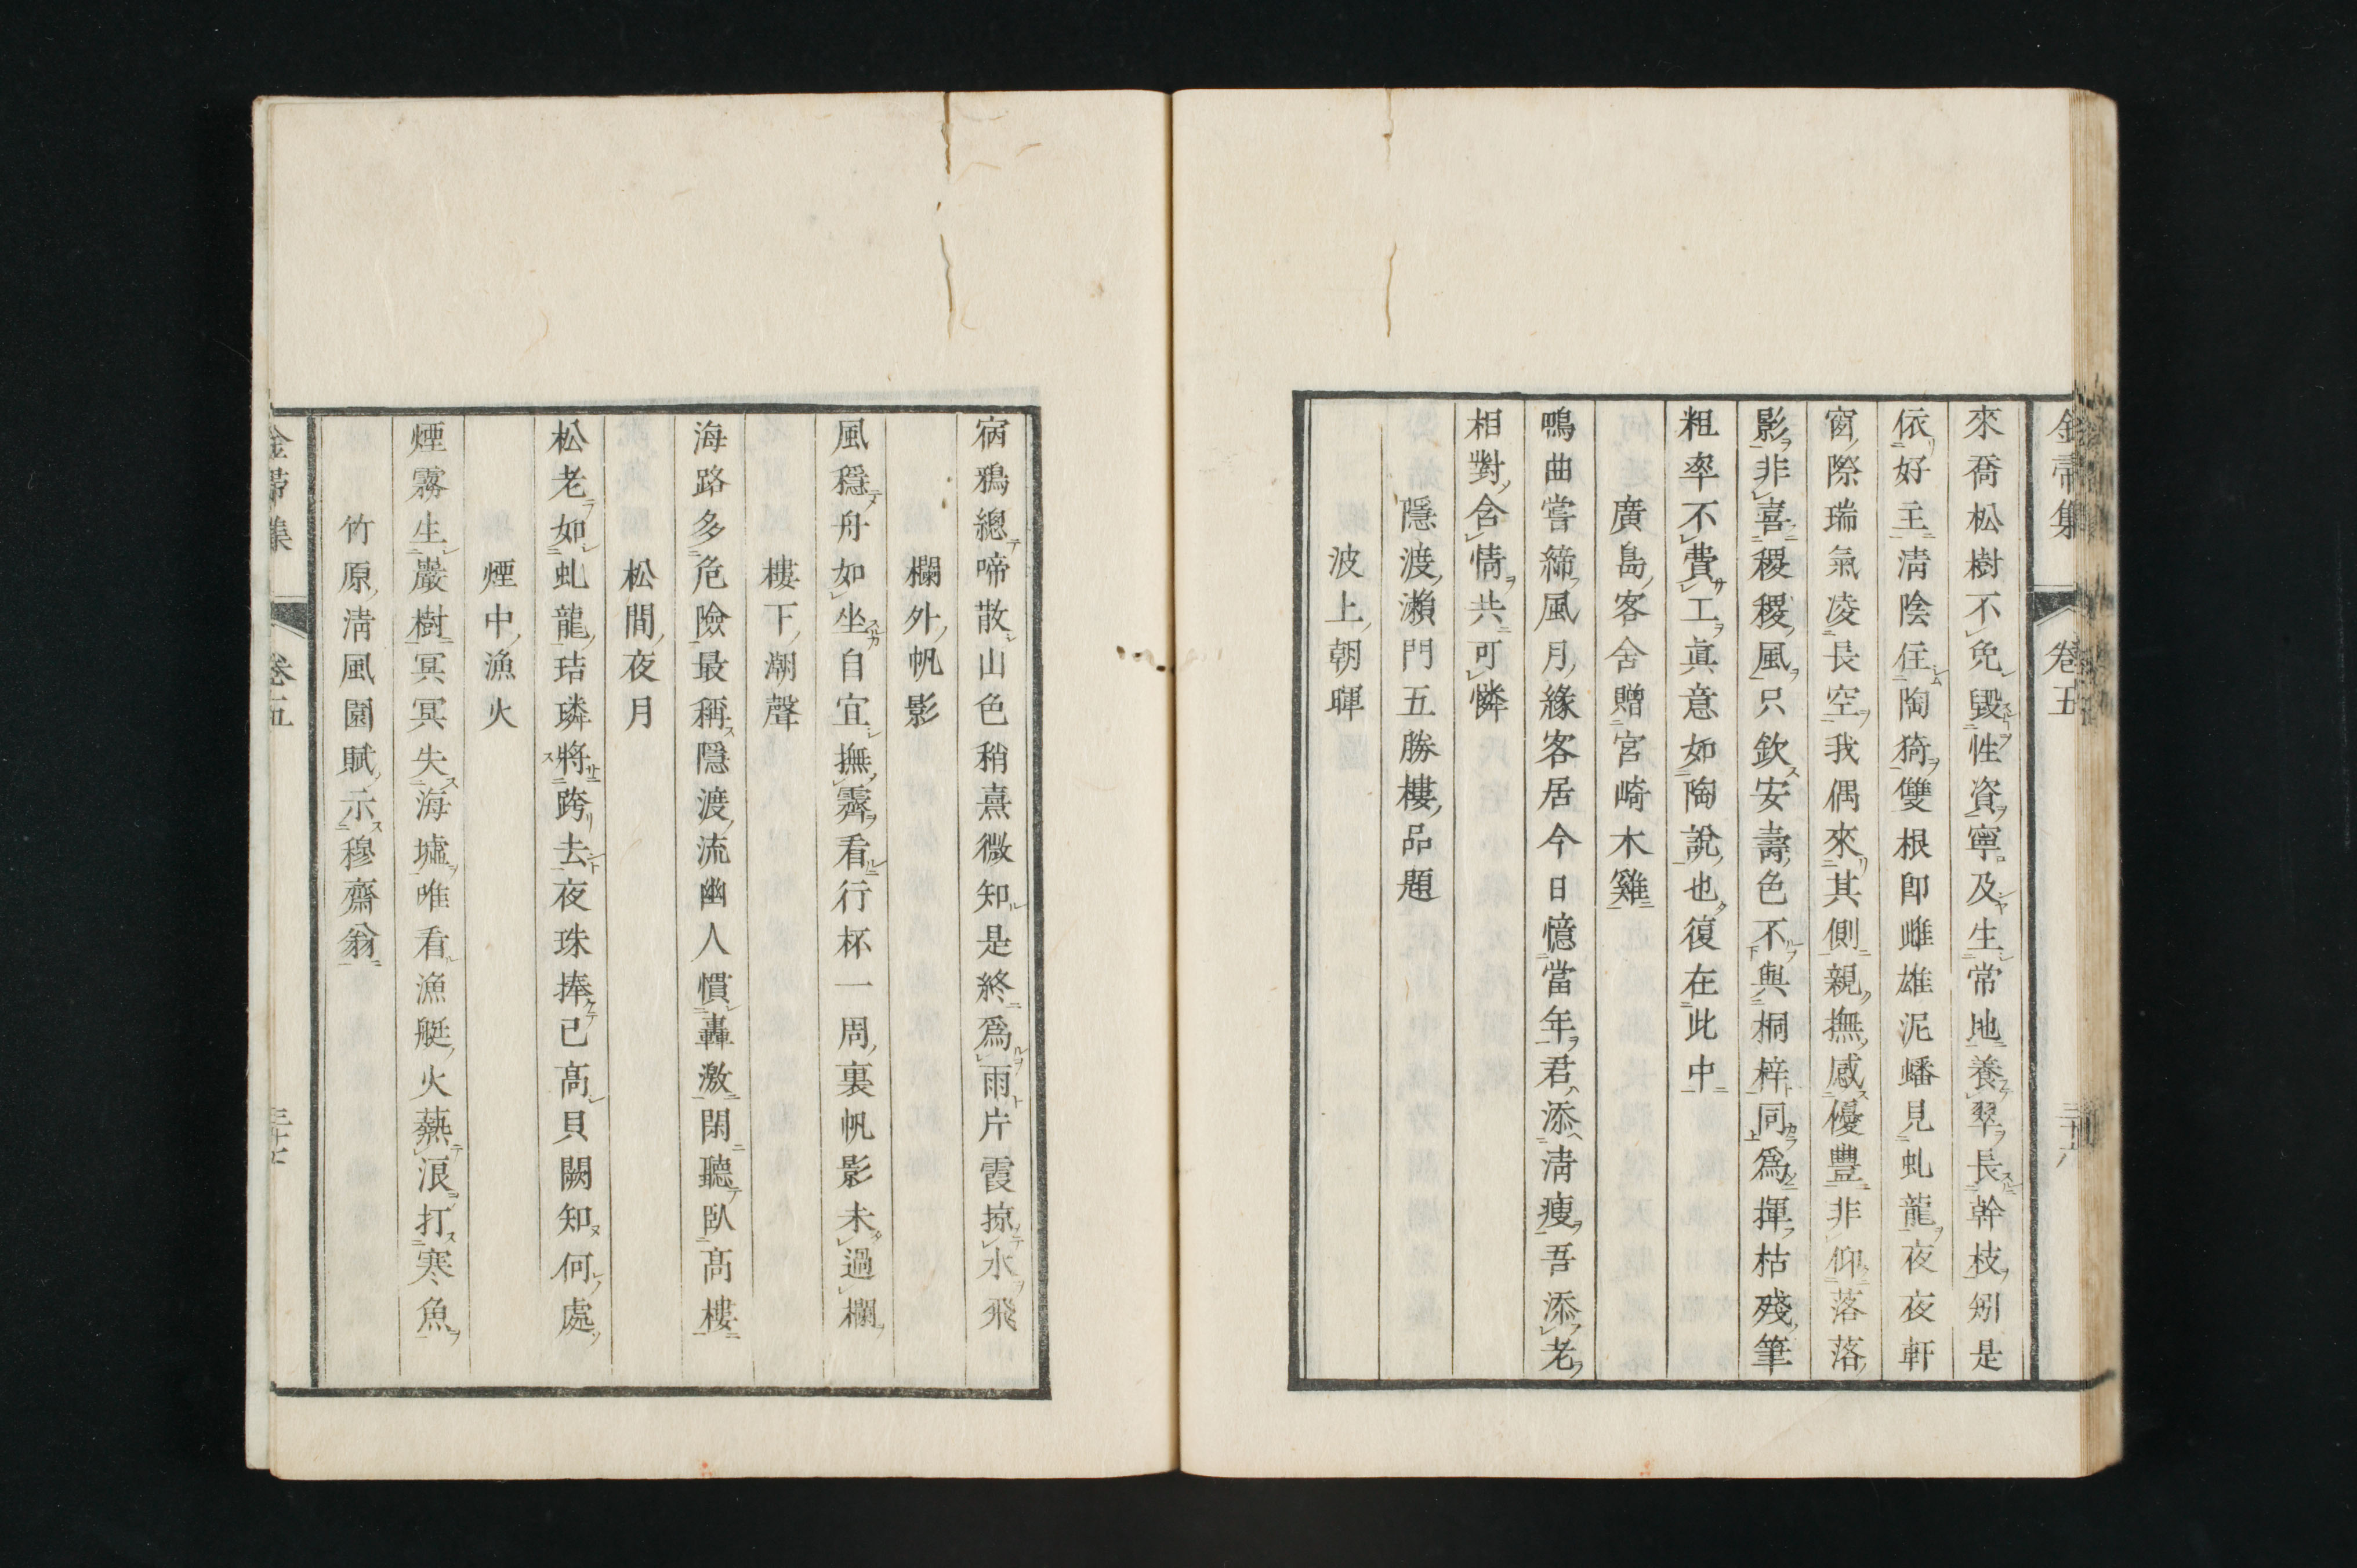 來喬松樹不免毀性資寧及生常地養翠長幹枝矧是
依好主淸陰住陶猗雙根卽雌雄泥蟠見虬龍夜夜軒
窗際瑞氣凌長空我偶來其側親撫感優豐非仰落落
影非喜稷稷風只欽安壽色不與桐梓同爲揮枯殘筆
粗率不費工眞意如陶說也復在此中
廣島客舍贈宮崎木雞
鳴曲嘗締風月緣客居今日憶當年君添淸瘦吾添老
相對含情共可憐
隱渡瀨門五勝樓品題
波上朝暉
宿鴉總啼散山色稍熹微知是終爲雨片霞掠水飛
欄外帆影
風穩舟如坐自宜撫霽看行杯一周裏帆影未過欄
樓下潮聲
海路多危險最稱隱渡流幽人慣轟激閑聽臥高樓
松間夜月
松老如虬龍琣璘將跨去夜珠捧已高貝闕知何處
煙中漁火
煙霧生巖樹冥冥失海墟唯看漁艇火爇浪打寒魚
竹原淸風園賦示穆齋翁
金帚集
卷五